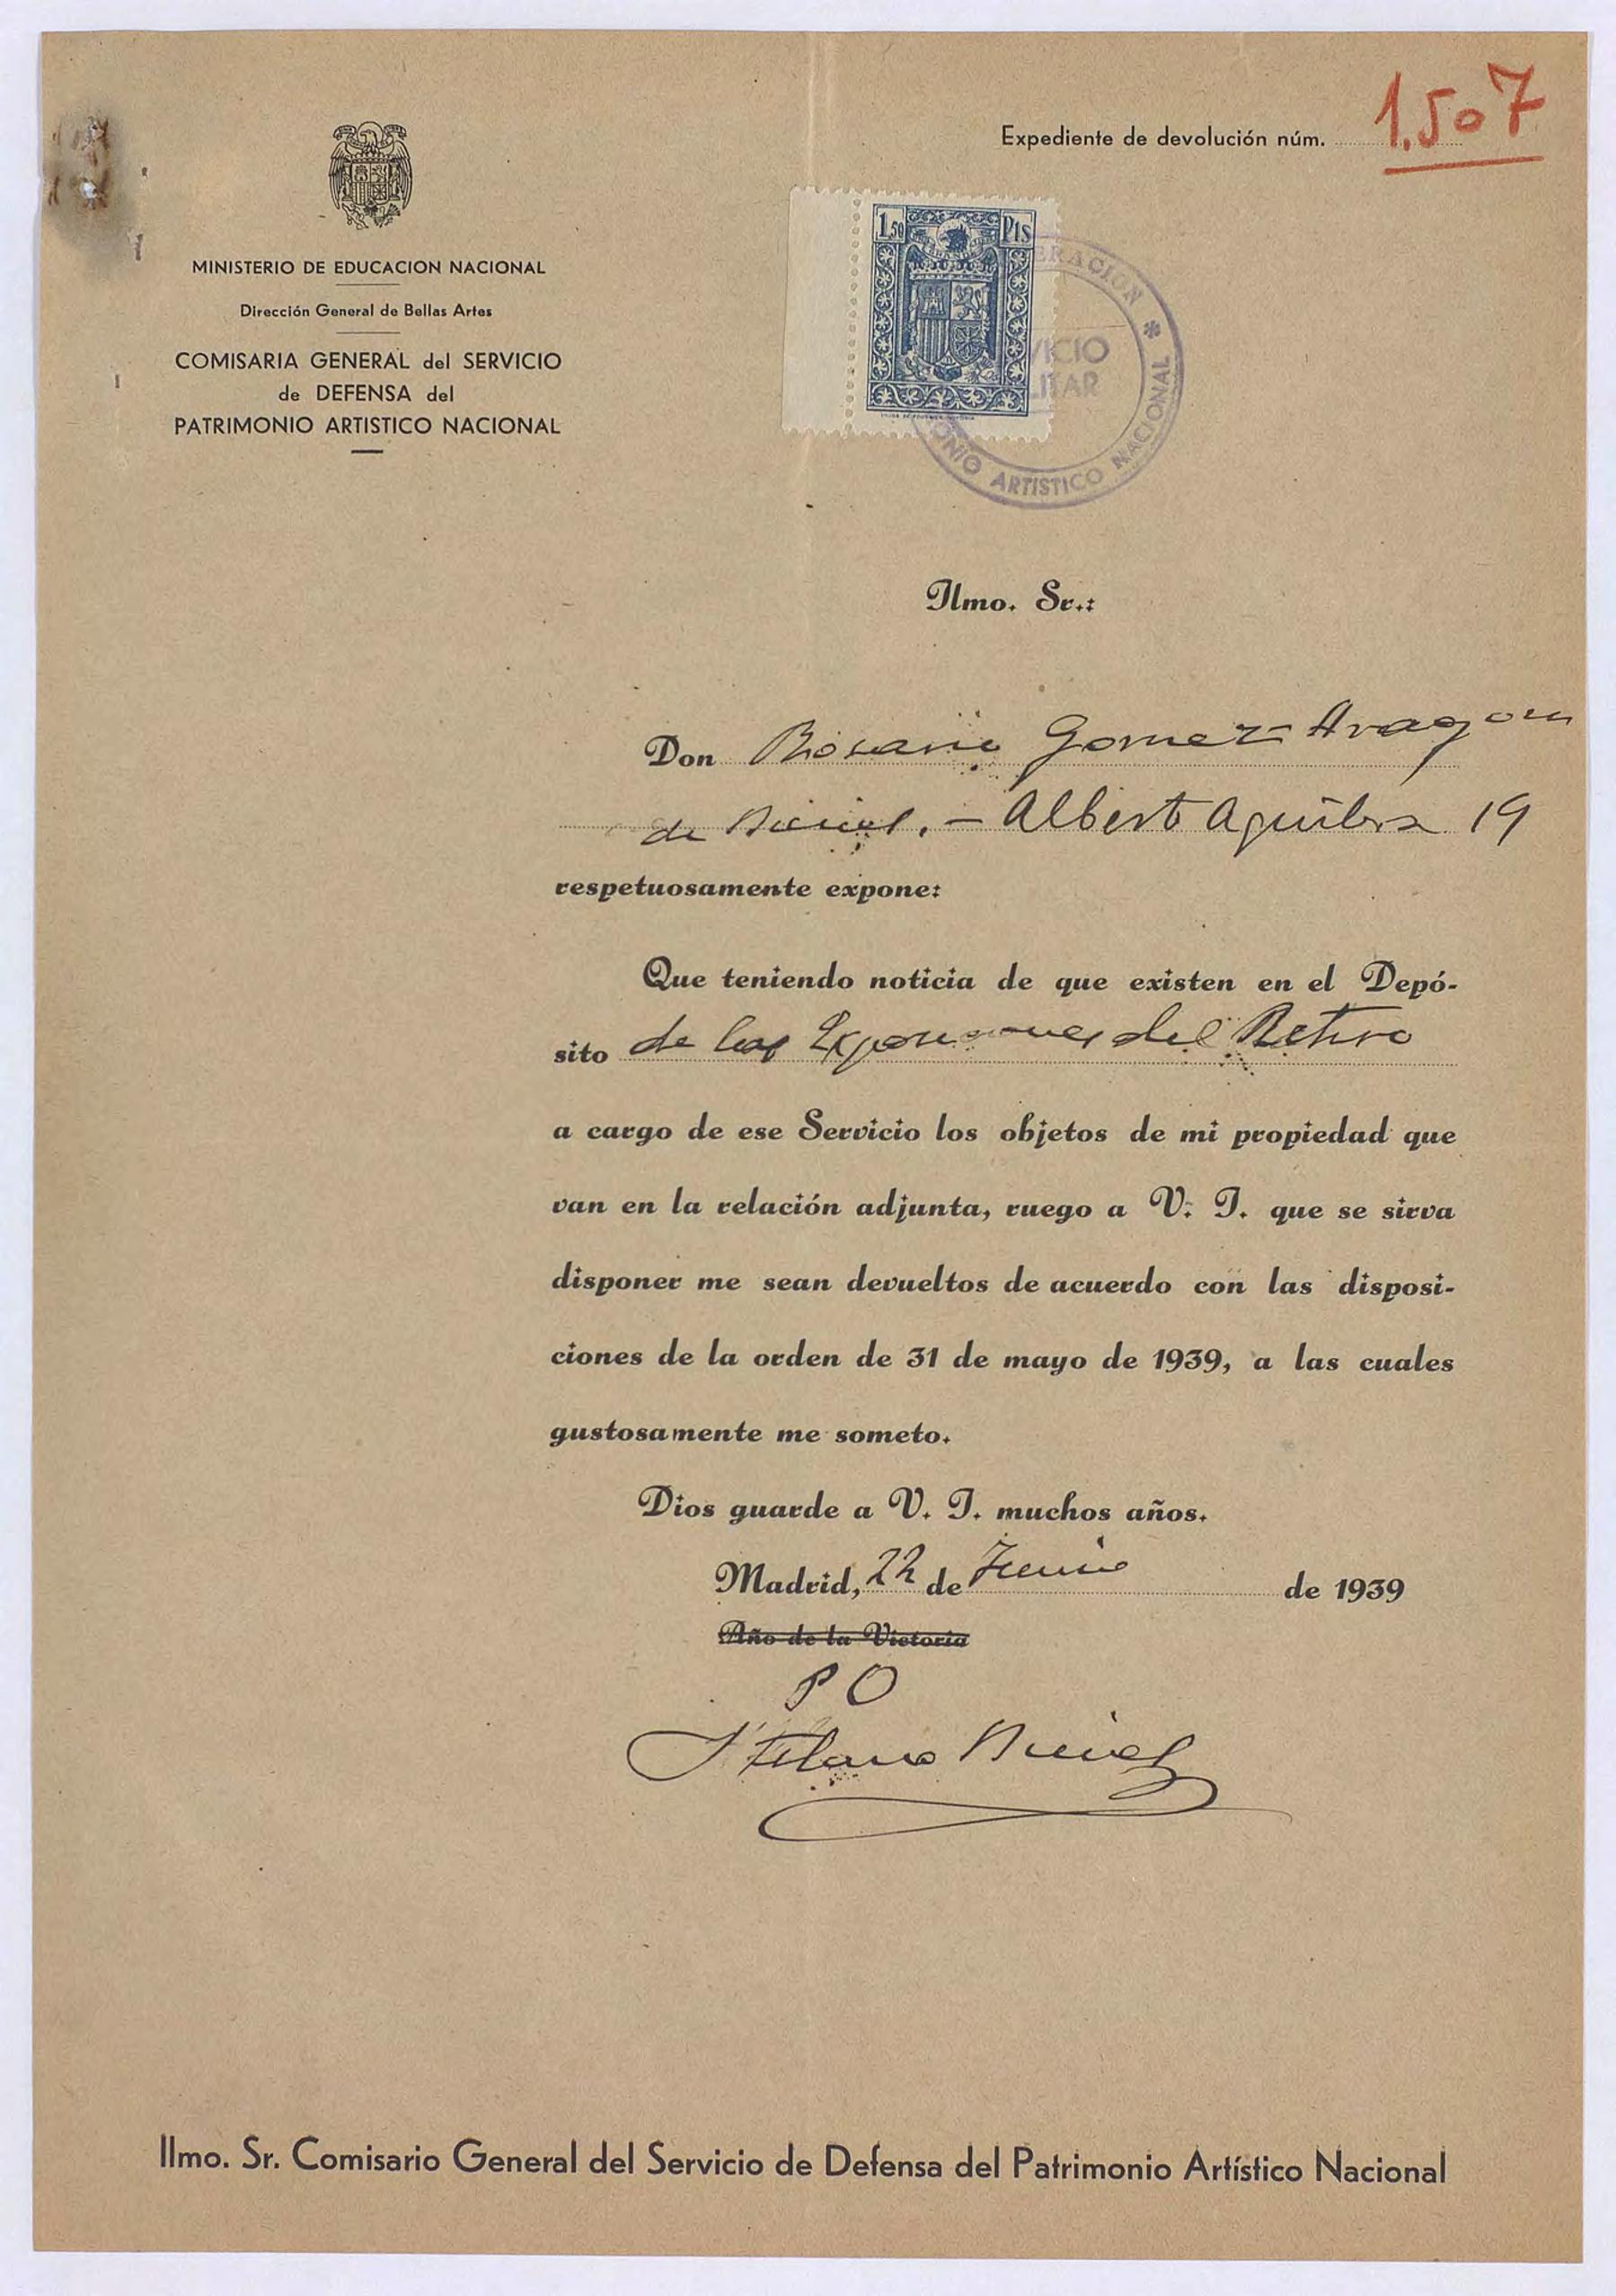 Expediente de devolución núm. 1.507
MINISTERIO DE EDUCACION NACIONAL
Dirección General de Bellas Artes
COMISARIA GENERAL del SERVICIO
de DEFENSA del
PATRIMONIO ARTISTICO NACIONAL
1,50 Pts
ERACION *
VICIO
LITAR
ONIO ARTISTICO NACIONAL
Ilmo. Sr.:
Don Rosario Gomez Aragon
de - Alberto Aguilera 19
respetuosamente expone:
Que teniendo noticia de que existen en el Depó-
sito de las del Retiro
a cargo de ese Servicio los objetos de mi propiedad que
van en la relación adjunta, ruego a V. I. que se sirva
disponer me sean devueltos de acuerdo con las disposi-
ciones de la orden de 31 de mayo de 1939, a las cuales
gustosamente me someto.
Dios guarde a V. I. muchos años.
Madrid, 22 de Junio de 1939
Año de la Victoria
P O
Ilmo. Sr. Comisario General del Servicio de Defensa del Patrimonio Artístico Nacional